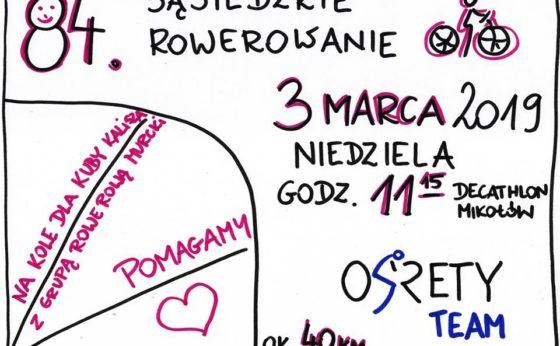 84. SĄSIEDZKIE
ROWEROWANIE
3 MARCA 2019
NIEDZIELA
GODZ. 11¹⁵ DECATHLON
MIKOŁÓW
NA KOLE DLA KUBY KALISZA
Z GRUPĄ ROWEROWĄ MURCKI
POMAGAMY
OSIRETY
TEAM
OK. 40 KM